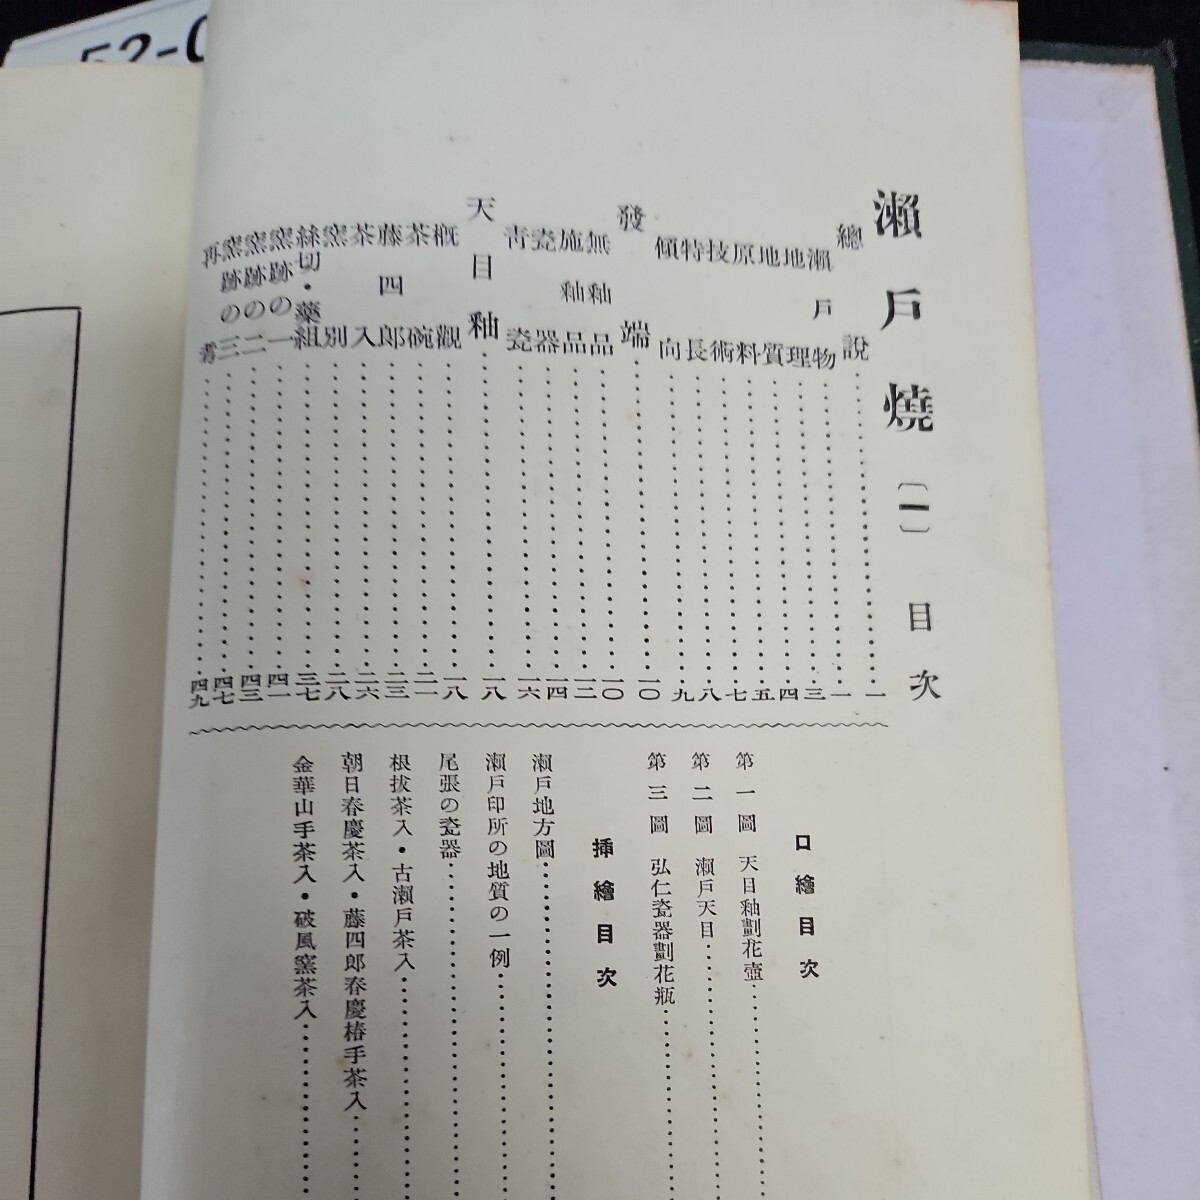 瀨戶燒〔一〕目次
總說……一
瀨戶物……一
地理……三
地質……四
原料……五
技術……七
特長……八
傾向……九
發端……一〇
無釉品……一〇
施釉品……一二
瓷器……一四
靑瓷……一六
天目釉……一八
概觀……一八
茶碗……二一
藤四郎……二三
茶入……二六
窯別……二八
絲切・藥組……三七
窯跡の一……四一
窯跡の二……四三
窯跡の三……四七
再考……四九
口繪目次
第一圖 天目釉劃花壺……
第二圖 瀨戶天目……
第三圖 弘仁瓷器劃花瓶……
挿繪目次
瀨戶地方圖……
瀨戶印所の地質の一例……
尾張の瓷器……
根拔茶入・古瀨戶茶入……
朝日春慶茶入・藤四郎春慶椿手茶入……
金華山手茶入・破風窯茶入……